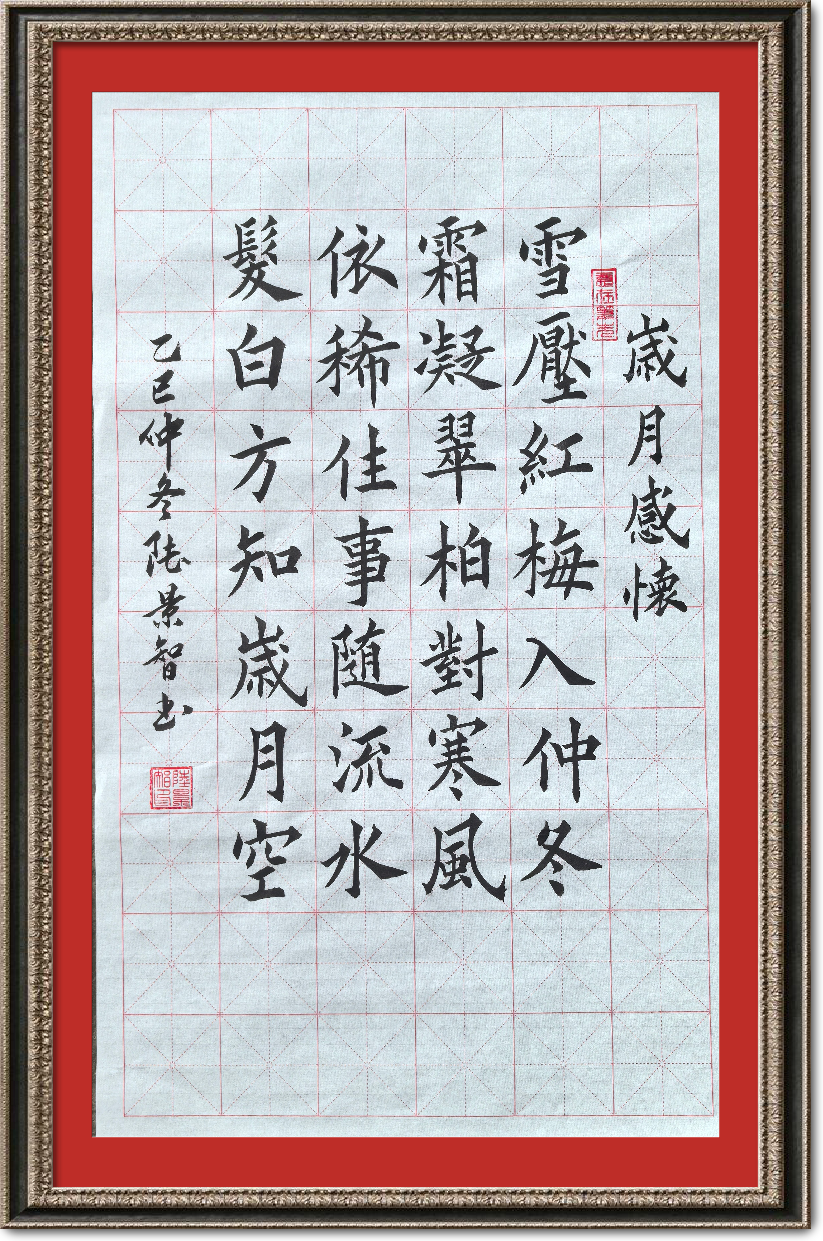 歲月感懷
雪壓紅梅入仲冬
霜凝翠柏對寒風
依稀佳事随流水
髮白方知歲月空
乙巳仲冬陸景智书